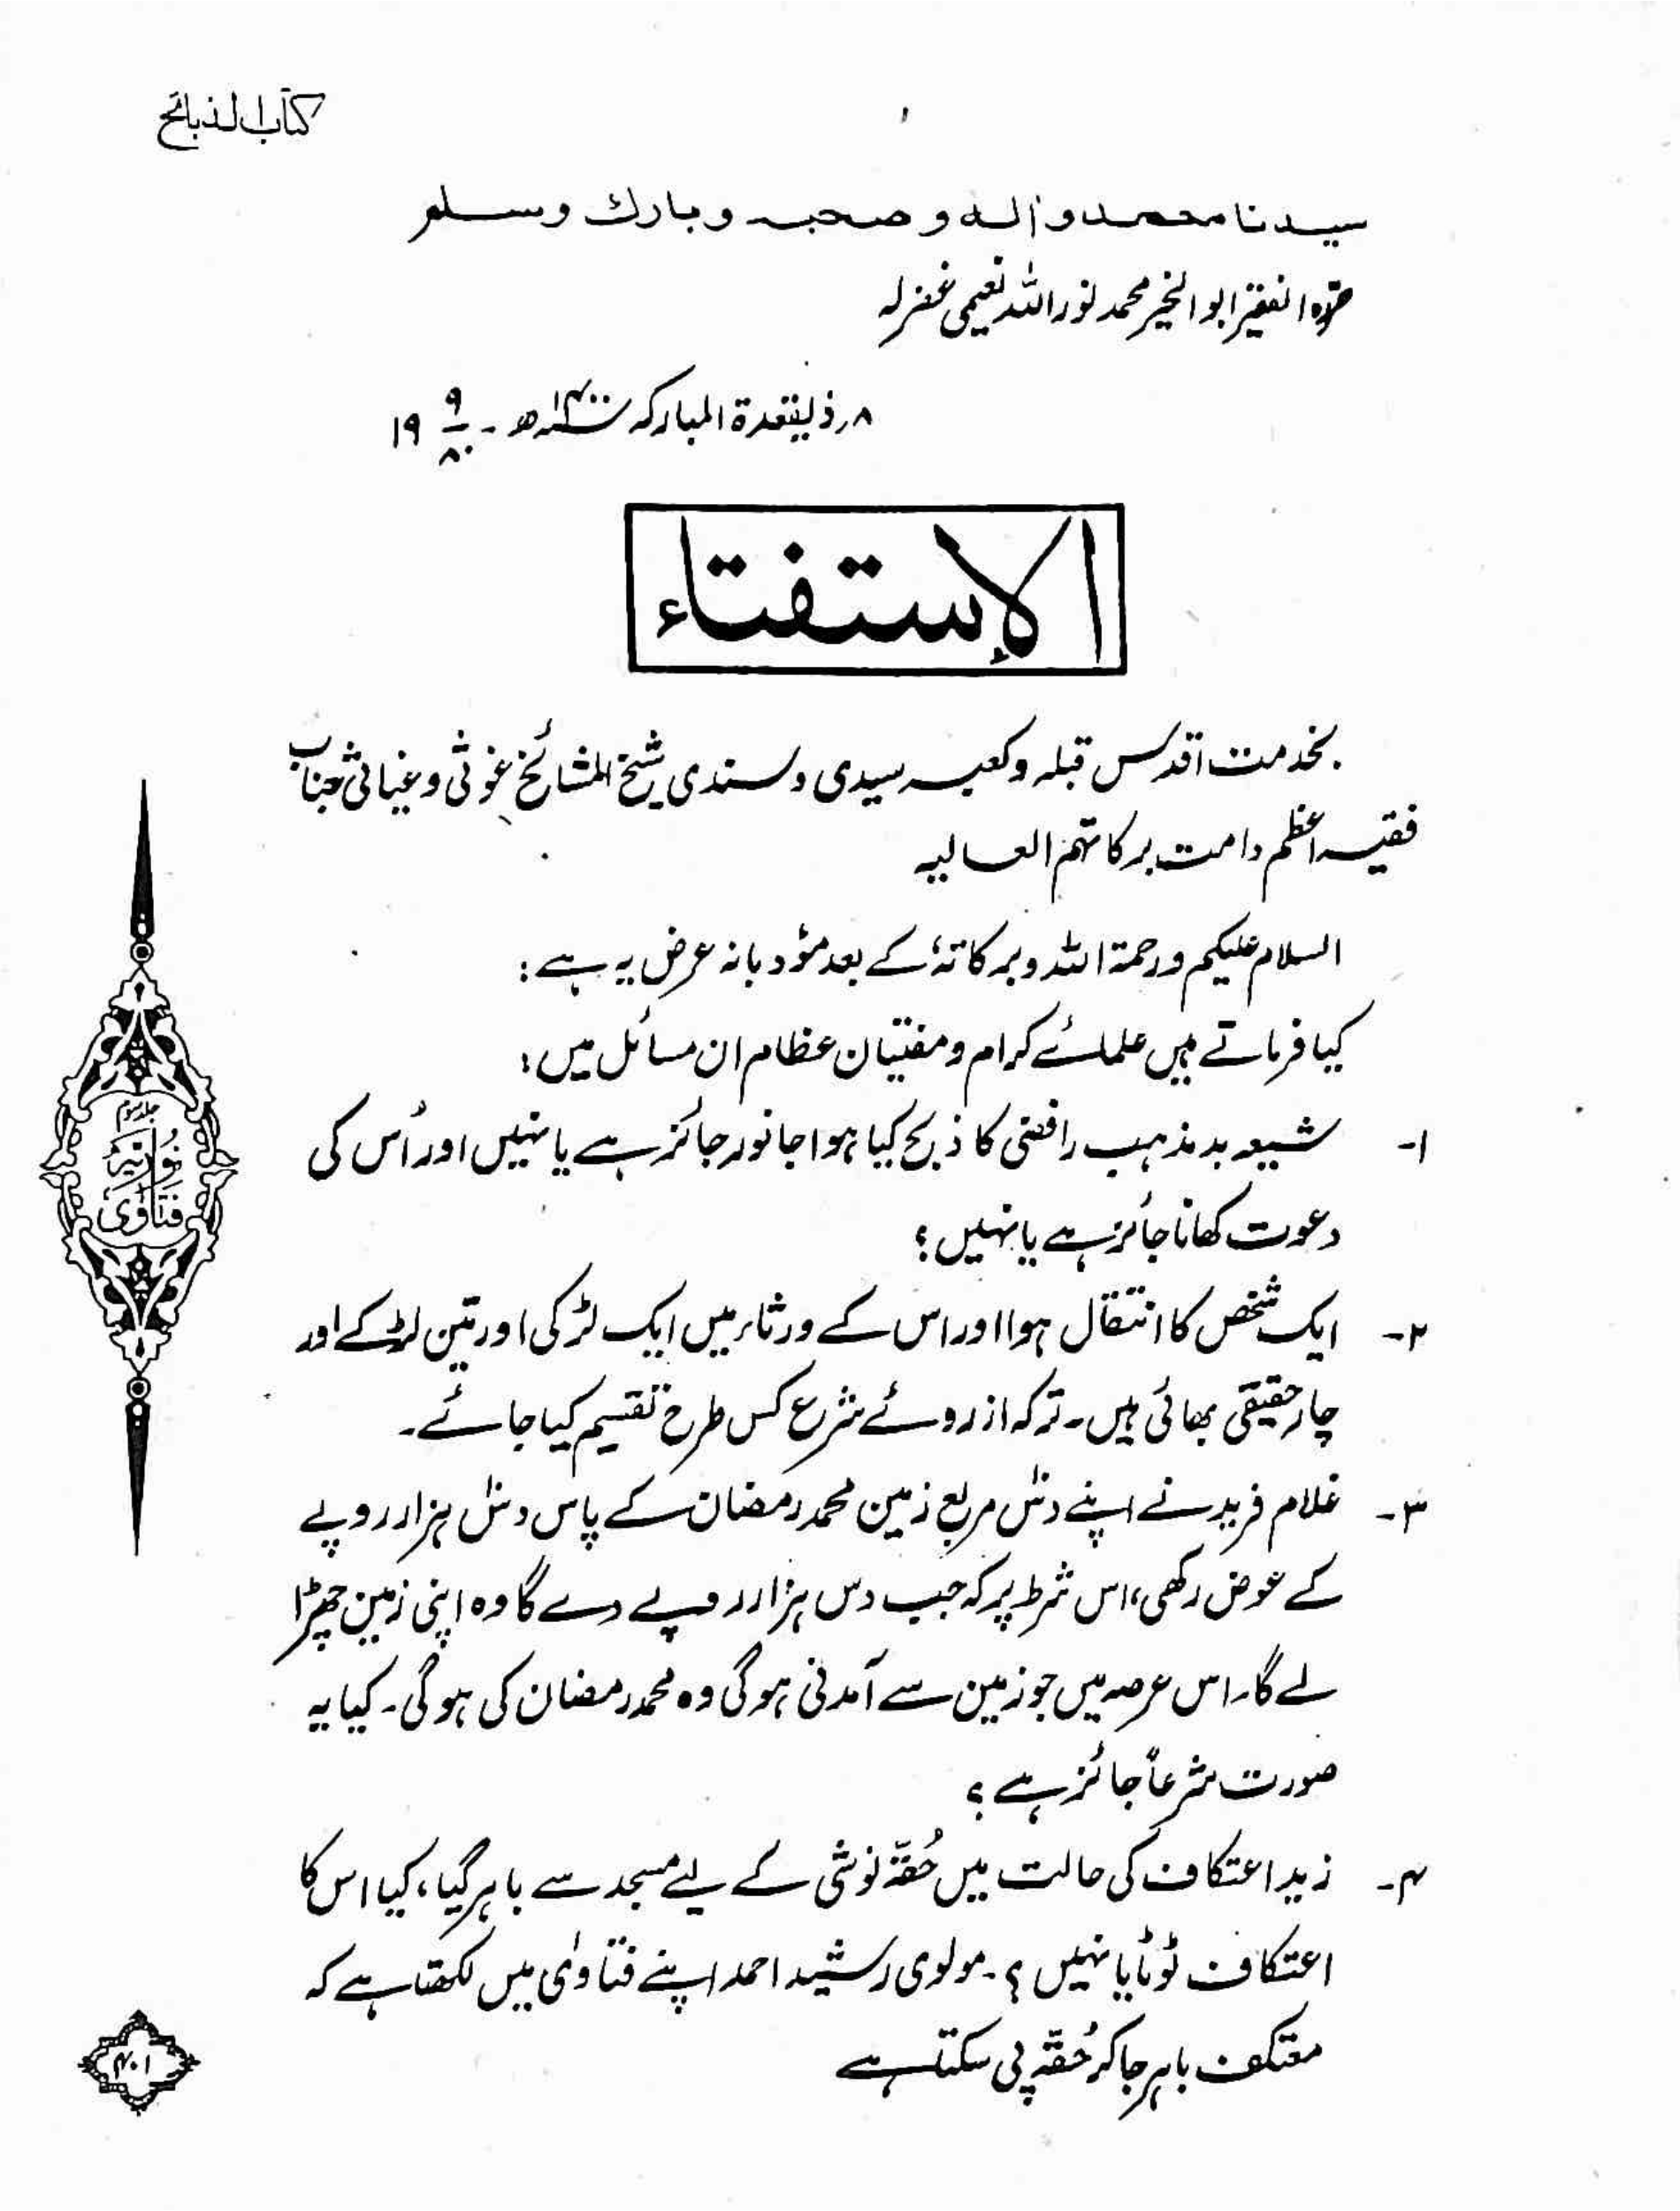 کتاب الذبائح
سیدنا محمد و اٰلہ و صحبہ و بارك وسلم
حررہ الفقیر ابو الخیر محمد نور اللہ نعیمی غفرلہ
۸؍ ذیقعدۃ المبارکہ ۱۴۰۰ھ ۔ ۱۹ ۹/۸۰
الاستفتاء
بخدمت اقدس قبلہ و کعبہ سیدی و سندی شیخ المشائخ غوثی و غیاثی جناب
فقیہ اعظم دامت برکاتہم العالیہ
السلام علیکم ورحمۃ اللہ وبرکاتہٗ کے بعد مؤدبانہ عرض یہ ہے:
کیا فرماتے ہیں علمائے کرام و مفتیان عظام ان مسائل میں:
۱۔ شیعہ بد مذہب رافضی کا ذبح کیا ہوا جانور جائز ہے یا نہیں اور اُس کی
دعوت کھانا جائز ہے یا نہیں؟
۲۔ ایک شخص کا انتقال ہوا اور اس کے ورثاء میں ایک لڑکی اور تین لڑکے اور
چار حقیقی بھائی ہیں۔ ترکہ از روئے شرع کس طرح تقسیم کیا جائے۔
۳۔ غلام فرید نے اپنے دس مربع زمین محمد رمضان کے پاس دس ہزار روپے
کے عوض رکھی، اس شرط پر کہ جب دس ہزار روپے دے گا وہ اپنی زمین چھڑا
لے گا۔ اس عرصہ میں جو زمین سے آمدنی ہوگی وہ محمد رمضان کی ہوگی۔ کیا یہ
صورت شرعاً جائز ہے؟
۴۔ زید اعتکاف کی حالت میں حُقّہ نوشی کے لیے مسجد سے باہر گیا، کیا اس کا
اعتکاف ٹوٹا یا نہیں؟۔ مولوی رشید احمد اپنے فتاوٰی میں لکھتا ہے کہ
معتکف باہر جا کر حُقّہ پی سکتا ہے
جلد سوم
نوریہ
فتاوٰی
۴۰۱